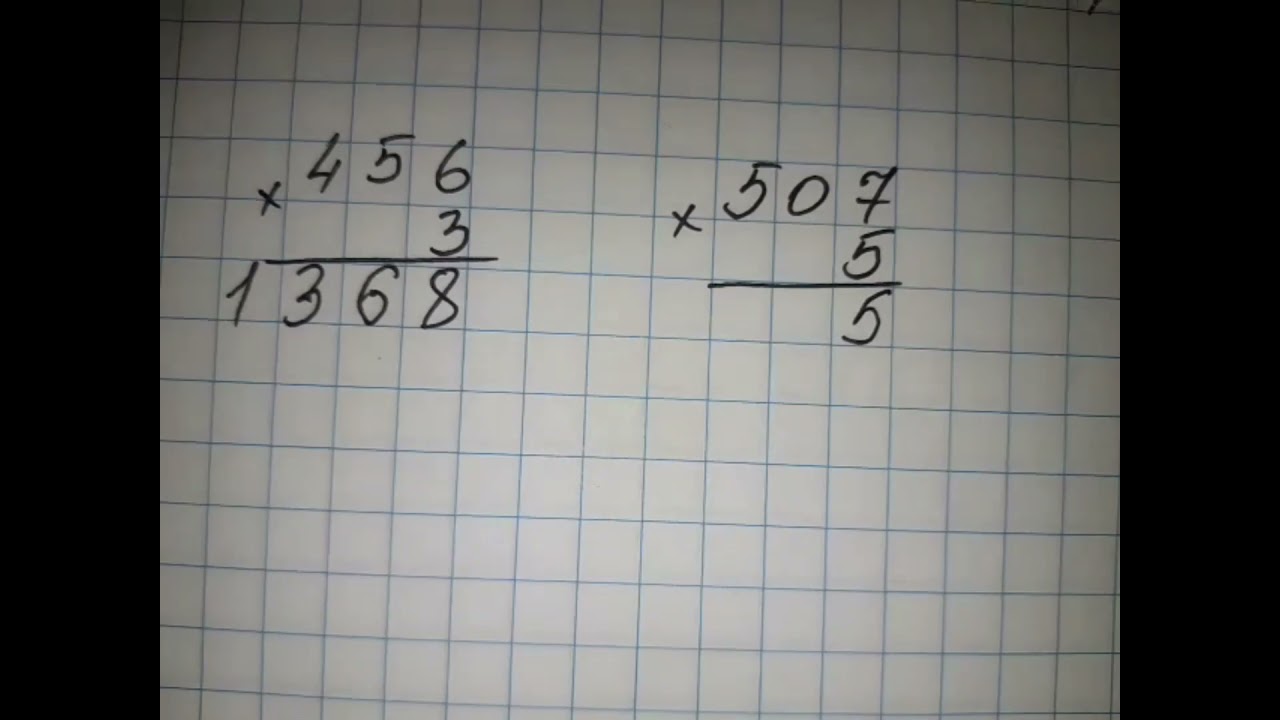 × 456
3
1368
× 507
5
5